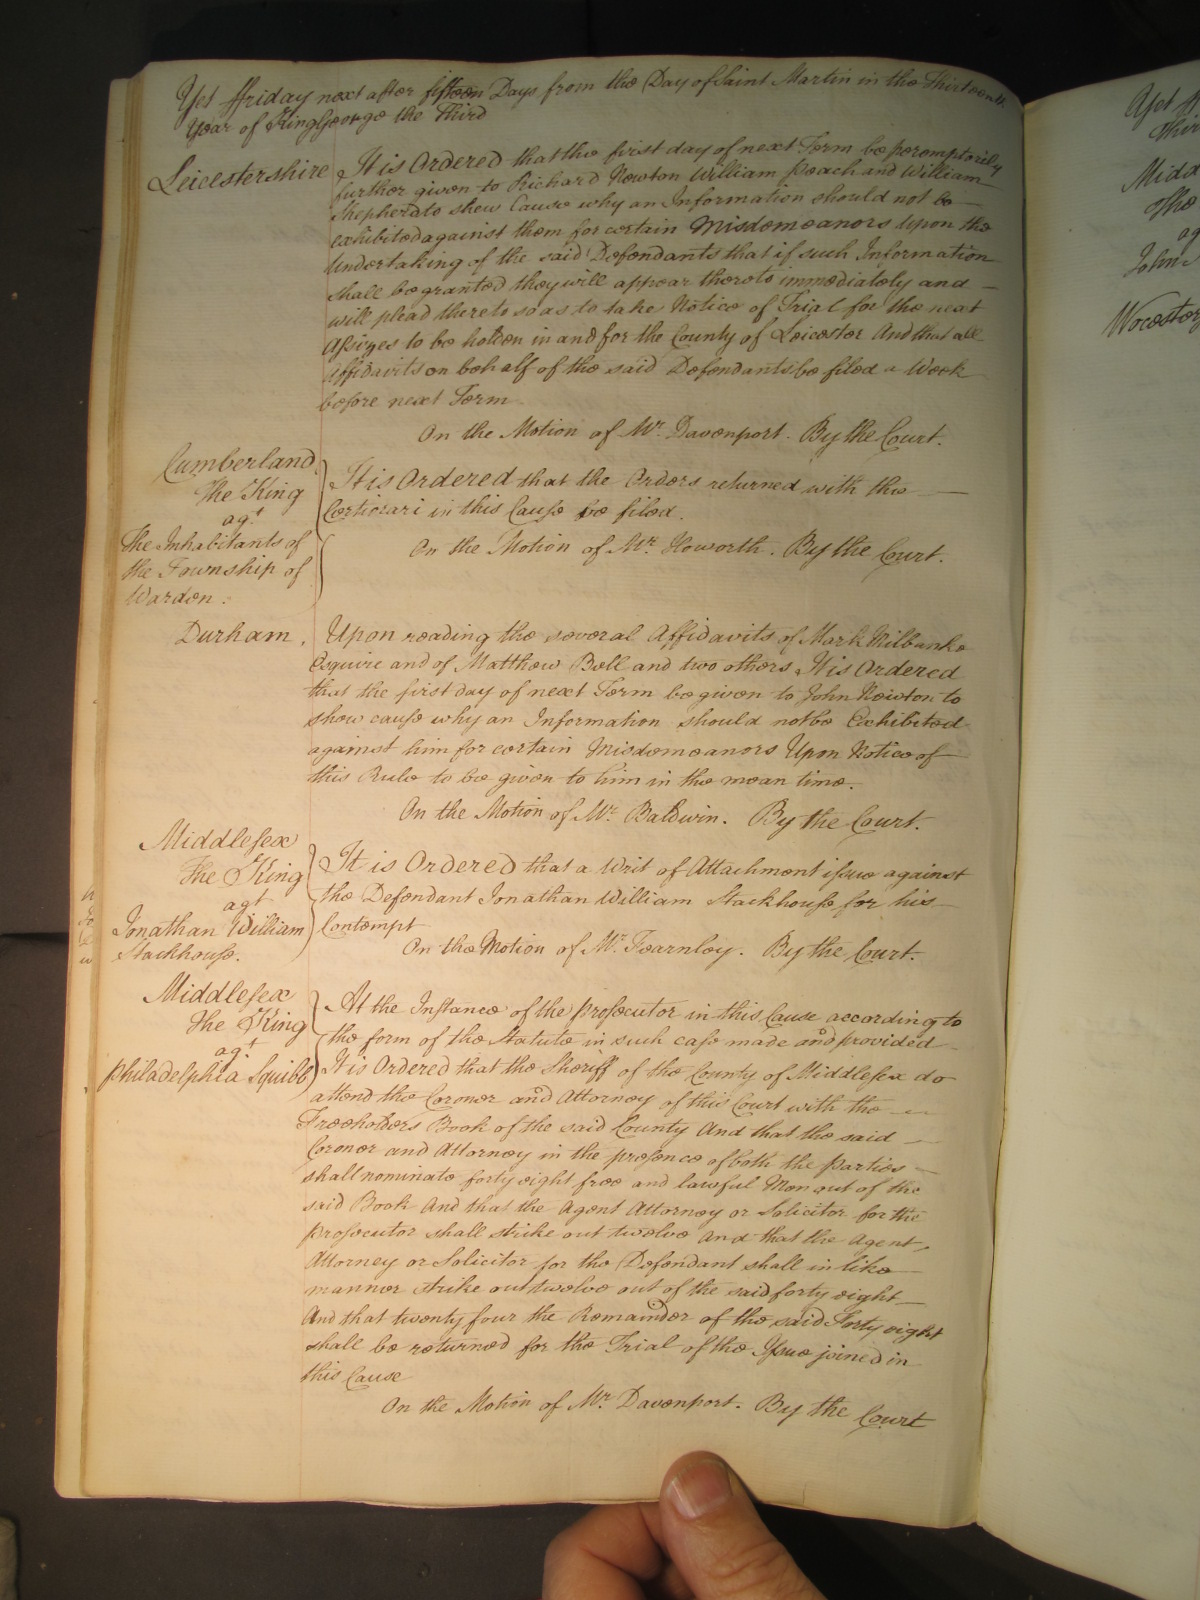 Yet ffriday next after fifteen Days from the Day of Saint Martin in the Thirteenth
Year of King George the Third
Leicestershire It is Ordered that the first day of next Term be peremptorily
further given to Richard Newton William Peach and William
Shepherd to shew Cause why an Information should not be
exhibited against them for certain Misdemeanors upon the
Undertaking of the said Defendants that if such Information
shall be granted they will appear thereto immediately and
will plead thereto so as to take Notice of Trial for the next
Assizes to be holden in and for the County of Leicester And that all
Affidavits on behalf of the said Defendants be filed a Week
before next Term
On the Motion of Mr. Davenport. By the Court.
Cumberland
The King
agt
The Inhabitants of
the Township of
Warden.
It is Ordered that the Orders returned with the
Certiorari in this Cause be filed.
On the Motion of Mr. Howorth. By the Court.
Durham. Upon reading the several Affidavits of Mark Milbanke
Esquire and of Matthew Bell and two others It is Ordered
that the first day of next Term be given to John Newton to
shew cause why an Information should not be Exhibited
against him for certain Misdemeanors Upon Notice of
this Rule to be given to him in the mean time.
On the Motion of Mr. Baldwin. By the Court.
Middlesex
The King
agt
Jonathan William
Stackhouse.
It is Ordered that a Writ of Attachment issue against
the Defendant Jonathan William Stackhouse for his
Contempt
On the Motion of Mr. Fearnley. By the Court.
Middlesex
The King
agt
Philadelphia Squibb
At the Instance of the Prosecutor in this Cause according to
the form of the Statute in such case made and provided
It is Ordered that the Sheriff of the County of Middlesex do
attend the Coroner and Attorney of this Court with the
Freeholders Book of the said County And that the said
Coroner and Attorney in the presence of both the parties
shall nominate forty eight free and lawful Men out of the
said Book And that the Agent Attorney or Solicitor for the
prosecutor shall strike out twelve And that the Agent,
Attorney or Solicitor for the Defendant shall in like
manner strike out twelve out of the said forty eight
And that twenty four the Remainder of the said Forty eight
shall be returned for the Trial of the Issue joined in
this Cause
On the Motion of Mr. Davenport. By the Court
Yet
Midd
The
ag
John
Worcester